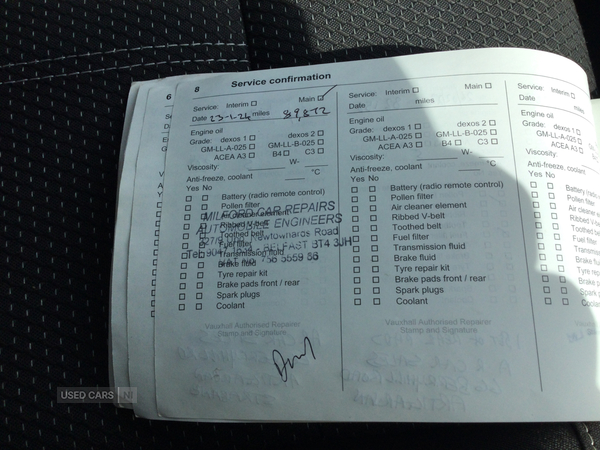 8 Service confirmation
6
Service: Interim Main
Date 23-1-24 miles 89,872
Engine oil
Grade: dexos 1 dexos 2
GM-LL-A-025 GM-LL-B-025
ACEA A3 B4 C3
Viscosity: W-
Anti-freeze, coolant °C
Yes No
Battery (radio remote control)
Pollen filter
Air cleaner element
Ribbed V-belt
Toothed belt
Fuel filter
Transmission fluid
Brake fluid
Tyre repair kit
Brake pads front / rear
Spark plugs
Coolant
MILFORD CAR REPAIRS
AUTOMOTIVE ENGINEERS
Newtownards Road
BELFAST BT4 3JH
Vauxhall Authorised Repairer
Stamp and Signature
Service: Interim Main
Date miles
Engine oil
Grade: dexos 1 dexos 2
GM-LL-A-025 GM-LL-B-025
ACEA A3 B4 C3
Viscosity: W-
Anti-freeze, coolant °C
Yes No
Battery (radio remote control)
Pollen filter
Air cleaner element
Ribbed V-belt
Toothed belt
Fuel filter
Transmission fluid
Brake fluid
Tyre repair kit
Brake pads front / rear
Spark plugs
Coolant
Vauxhall Authorised Repairer
Stamp and Signature
Service: Interim
Date
Engine oil
Grade: dexos 1
GM-LL-A-025
ACEA A3
Viscosity:
Anti-freeze, coolant
Yes No
Battery (radio
Pollen filter
Air cleaner
Ribbed V-
Toothed b
Fuel filter
Transmis
Brake flu
Tyre rep
Brake p
Spark p
Coolant
USED CARS NI